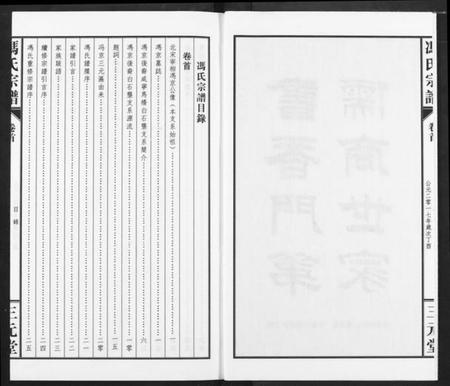 馮氏宗譜
卷首
公元二零一七年歲次丁酉
三元堂
馮氏宗譜目錄
卷首
北宋宰相馮京公像（本支系始祖）
馮京墓誌 一
馮京後裔咸寧馬橋白石壟支系簡介 六
馮京後裔白石壟支系源流 一零
題詞 一五
馮京三元匾由來 二零
馮氏譜牒序 二一
家譜引言 二二
家族跋語 二三
續修宗譜引言序 二四
馮氏重修宗譜序 二五
馮氏宗譜
卷首
目錄
三元堂